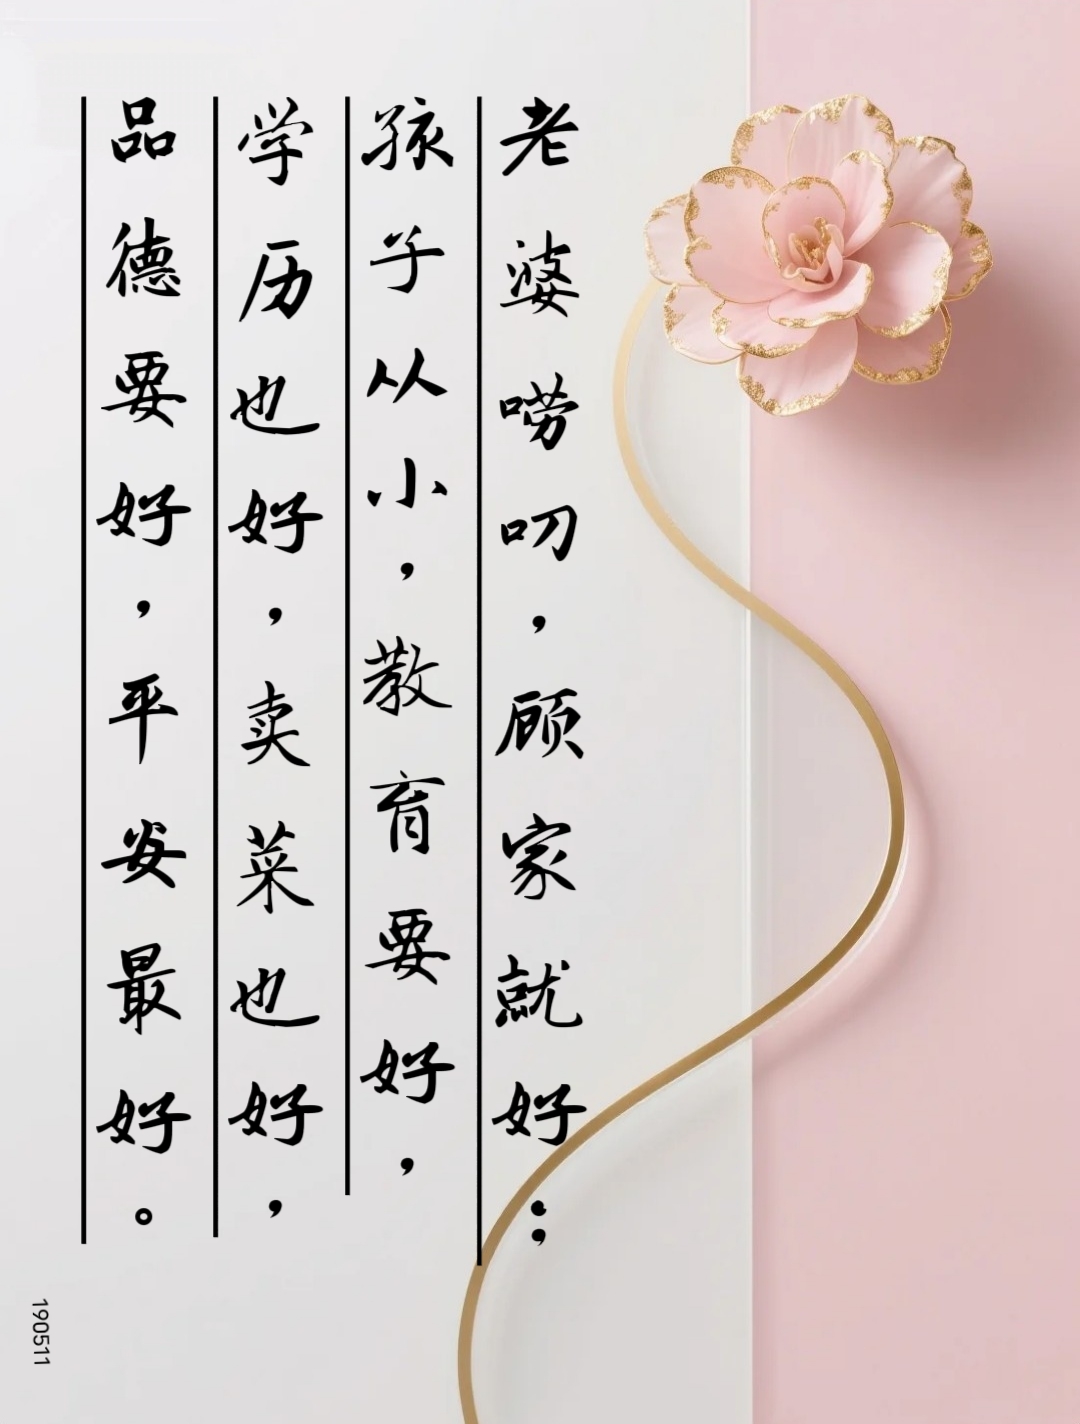 老婆唠叨，顾家就好；
孩子从小，教育要好，
学历也好，卖菜也好，
品德要好，平安最好。
190511